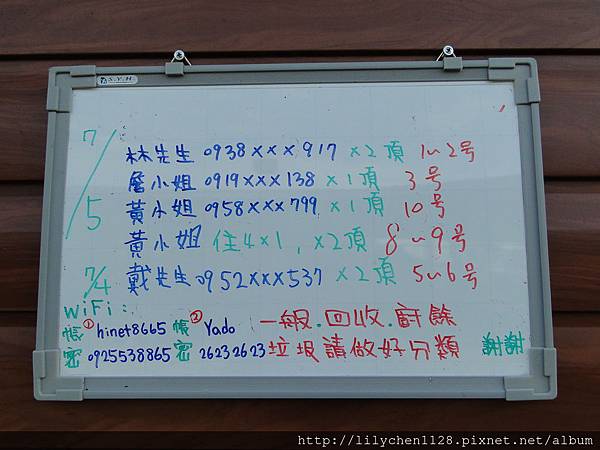 S.Y.H.
7/5
林先生 0938×××917 ×2頂 1~2号
詹小姐 0919×××138 ×1頂 3号
黃小姐 0958×××799 ×1頂 10号
黃小姐 住4×1,×2頂 8~9号
7/4 戴先生 0952×××537 ×2頂 5~6号
WiFi:
帳① hinet8665 帳② Yado 一般.回收.廚餘
密 0925538865 密 26232623 垃圾請做好分類 謝謝
http://lilychen1128.pixnet.net/album